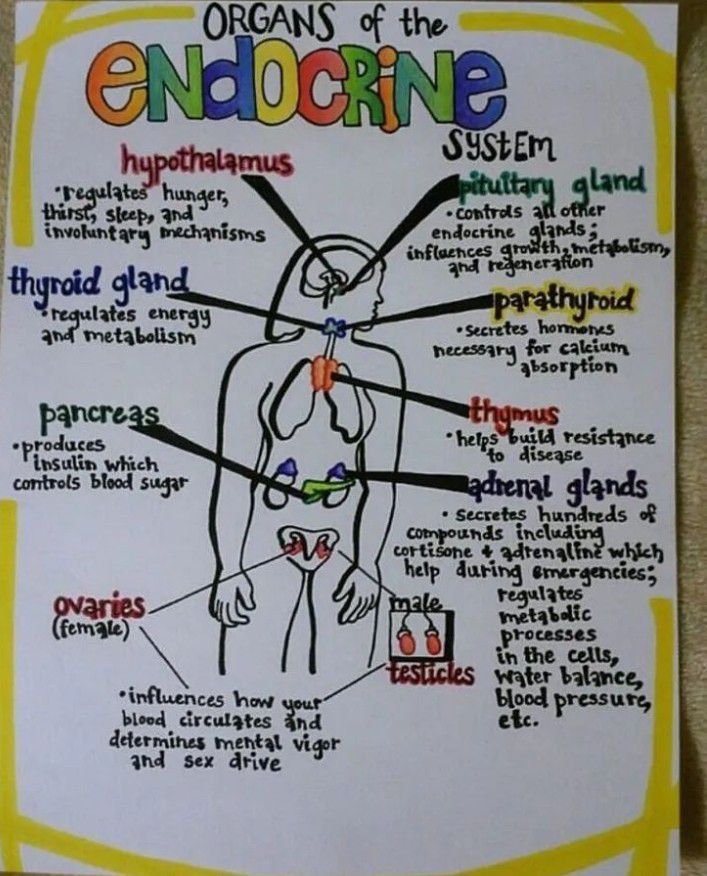 ORGANS of the
ENDOCRINE
SYSTEM
hypothalamus
•regulates hunger,
thirst, sleep, and
involuntary mechanisms
pituitary gland
•controls all other
endocrine glands;
influences growth, metabolism,
and regeneration
thyroid gland
•regulates energy
and metabolism
parathyroid
•secretes hormones
necessary for calcium
absorption
pancreas
•produces
insulin which
controls blood sugar
thymus
•helps build resistance
to disease
adrenal glands
•secretes hundreds of
compounds including
cortisone + adrenaline which
help during emergencies;
regulates
metabolic
processes
in the cells,
water balance,
blood pressure,
etc.
ovaries
(female)
male
testicles
•influences how your
blood circulates and
determines mental vigor
and sex drive